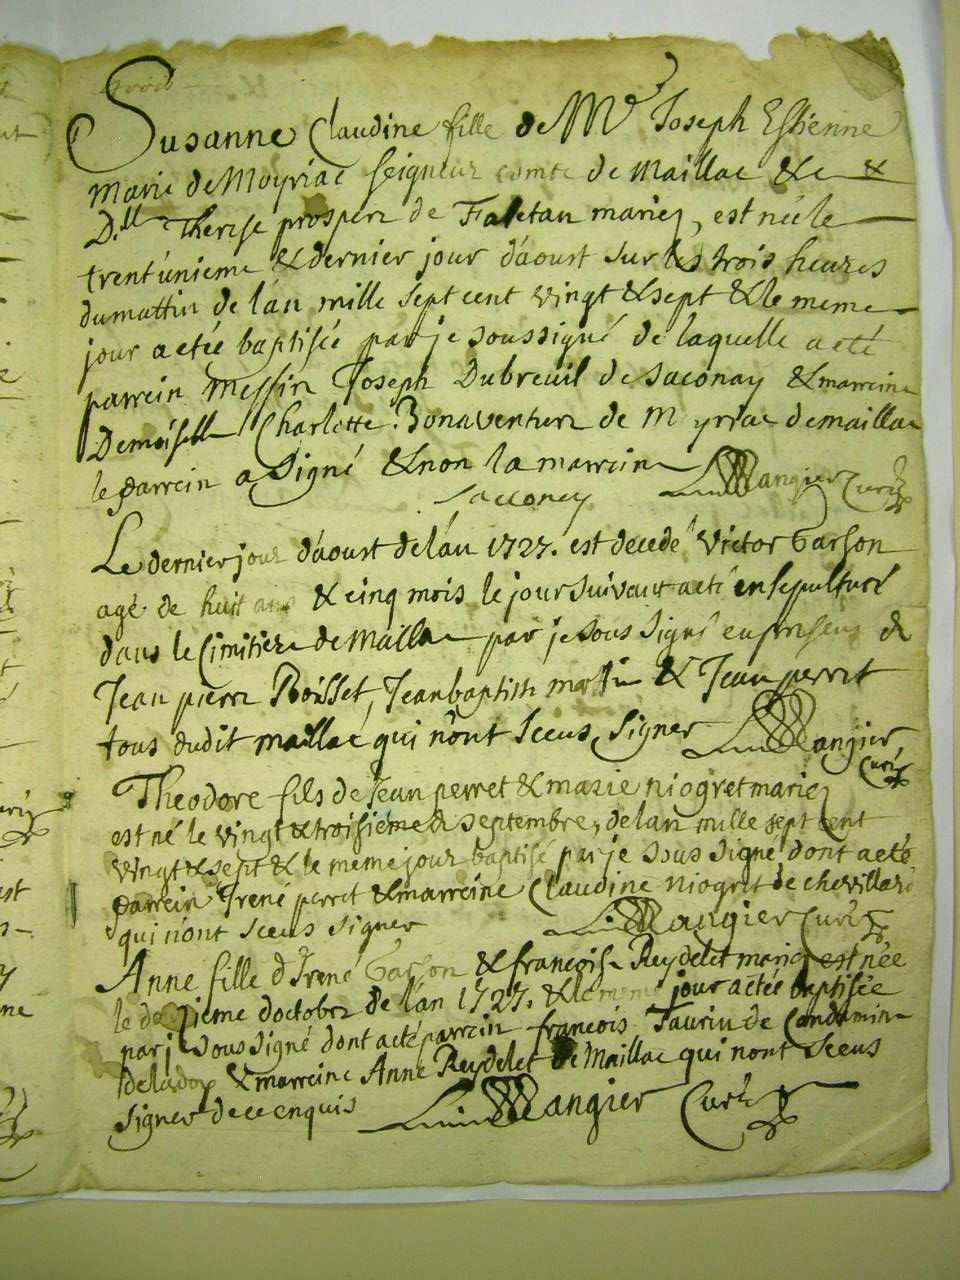 trois
Susanne Claudine fille de Mr Joseph Estienne
Marie de Moyriac seigneur comte de Maillac &c &
D.lle Therese prosper de Faletan mariez, est née le
trent'unieme & dernier jour d'aoust sur les trois heures
du mattin de l'an mille sept cent vingt & sept & le meme
jour a etée baptisée par je soussigné de laquelle a eté
parrein Messire Joseph Dubreuil de Saconay & marreine
Demoiselle Charlotte Bonaventure de Moyriac de Maillac
le parrein a signé & non la marreine Mangier Curé
Sacconey
Le dernier jour d'aoust de l'an 1727. est decedé Victor Garson
agé de huit ans & cinq mois le jour suivant a eté ensepulturé
dans le Cimitiere de Maillac par je sous signé en presence de
Jean pierre Boisset, Jean baptiste & Jean perret
tous dudit maillac qui n'ont sceus signer Mangier
Curé
Theodore fils de Jean perret & marie niogret mariez
est né le vingt & troisiéme de septembre, de lan mille sept cent
vingt & sept & le meme jour baptisé par je sous signé dont a eté
parrein Irené perret & marreine Claudine niogret de chevillard
qui n'ont sceus signer Mangier Curé
Anne fille d'Irené Garson & francoise Reydelet mariez est née
le d'octobre de l'an 1727. & le meme jour a etée baptisée
par je sous signé dont a eté parrein francois Taurin de Condamine
de la doye & marreine Anne Reydelet de Maillac qui n'ont sceus
signer de ce enquis Mangier Curé